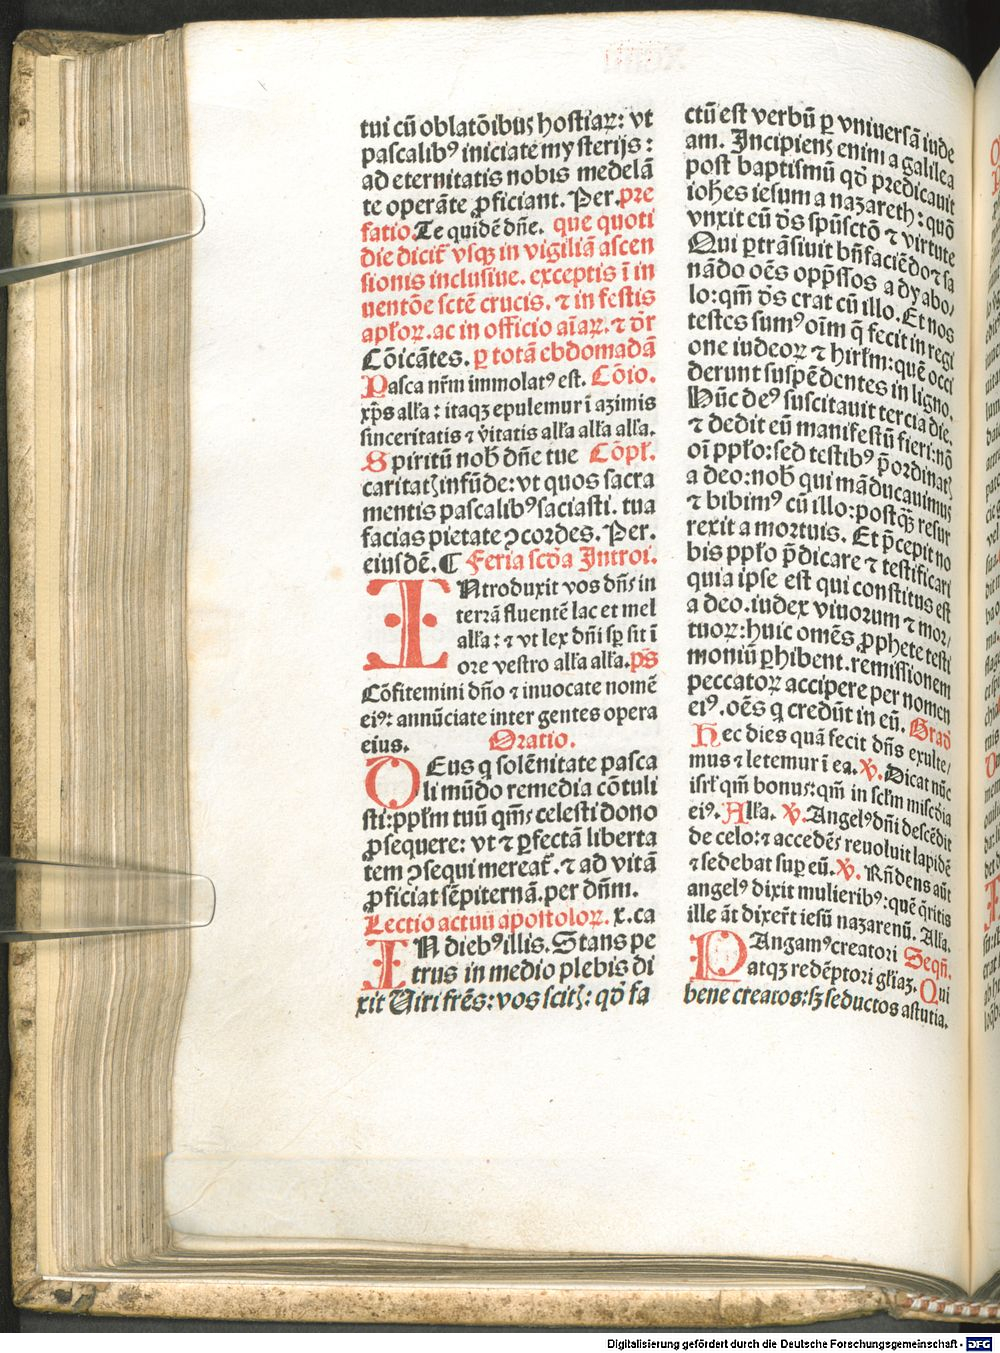 tui cū oblatōibus hostiaꝝ: vt
pascalibꝰ iniciate mysterijs:
ad eternitatis nobis medelā
te operāte ꝓficiant. Per. pre
fatio. Te quidē dñe. que quoti
die dicit᷑ vsqꝫ in vigiliā ascen
sionis inclusiue. exceptis ī in
uentōe sctē crucis. ⁊ in festis
apłoꝝ. ac in officio aīaꝝ. ⁊ dr̄
Cōicātes. ꝑ totā ebdomadā
Pasca nr̄m immolatꝰ est. Cōio.
xp̄s ałła: itaqꝫ epulemur ī azimis
sinceritatis ⁊ v̄itatis ałła ałła ałła.
Spiritū nob̄ dñe tue Cōpł.
caritatꝭ infūde: vt quos sacra
mentis pascalibꝰ saciasti. tua
facias pietate ꝯcordes. Per.
eiusdē. ¶ Feria scd̄a Introi.
INtroduxit vos dñs in
terrā fluentē lac et mel
ałła: ⁊ vt lex dñi sꝑ sit ī
ore vestro ałła ałła. p̄s
Cōfitemini dño ⁊ inuocate nomē
eiꝰ: annūciate inter gentes opera
eius. Oratio.
DEus q solēnitate pasca
li mūdo remedia cōtuli
sti: ppłm tuū qm̄s celesti dono
ꝓsequere: vt ⁊ ꝑfectā liberta
tem ꝯsequi mereat᷑. ⁊ ad vitā
ꝓficiat sēpiternā. per dñm.
Lectio actuū apostoloꝝ. x. ca
IN diebꝰ illis. Stans pe
trus in medio plebis di
xit Uiri fr̄es: vos scitꝭ: qd̄ fa
ctū est verbū ꝑ vniuersā iude
am. Incipiens enim a galilea
post baptismū qd̄ predicauit
ioh̄es iesum a nazareth: quō
vnxit eū d̄s sp̄usctō ⁊ virtute
Qui ꝑtrāsiuit bn̄faciēdo ⁊ sa
nādo oēs opp̄ssos a dyabo/
lo: qm̄ d̄s erat cū illo. Et nos
testes sumꝰ oīm q̄ fecit in regi
one iudeoꝝ ⁊ hirłm: quē occi
derunt suspēdentes in ligno.
Hūc deꝰ suscitauit tercia die.
⁊ dedit eū manifestū fieri: nō
oī ppło: sed testibꝰ p̄ordinatꝭ
a deo: nob̄ qui māducauimus
⁊ bibimꝰ cū illo: postꝙ̄ resur
rexit a mortuis. Et p̄cepit no
bis ppło p̄dicare ⁊ testificari
quia ipse est qui constitus est
a deo. iudex viuorum ⁊ mor/
tuoꝝ: huic omēs ꝓphete testi
moniū ꝑhibent. remissionem
peccatoꝝ accipere per nomen
eiꝰ. oēs q credūt in eū. Grad̄
Hec dies quā fecit dñs exulte/
mus ⁊ letemur ī ea. ℣. Dicat nūc
isrł qm̄ bonus: qm̄ in secłm misc̄dia
eiꝰ. Ałła. ℣. Angelꝰ dñi descēdit
de celo: ⁊ accedēs reuoluit lapidē
⁊ sedebat suꝑ eū. ℣. Rn̄dens aūt
angelꝰ dixit mulieribꝰ: quē q̄ritis
ille āt dixer̄t iesū nazarenū. Ałła.
PAngamꝰ creatori Seqn̄.
atqꝫ redēptori głiaꝫ. Qui
bene creatos: sꝫ seductos astutia.
Digitalisierung gefördert durch die Deutsche Forschungsgemeinschaft - DFG